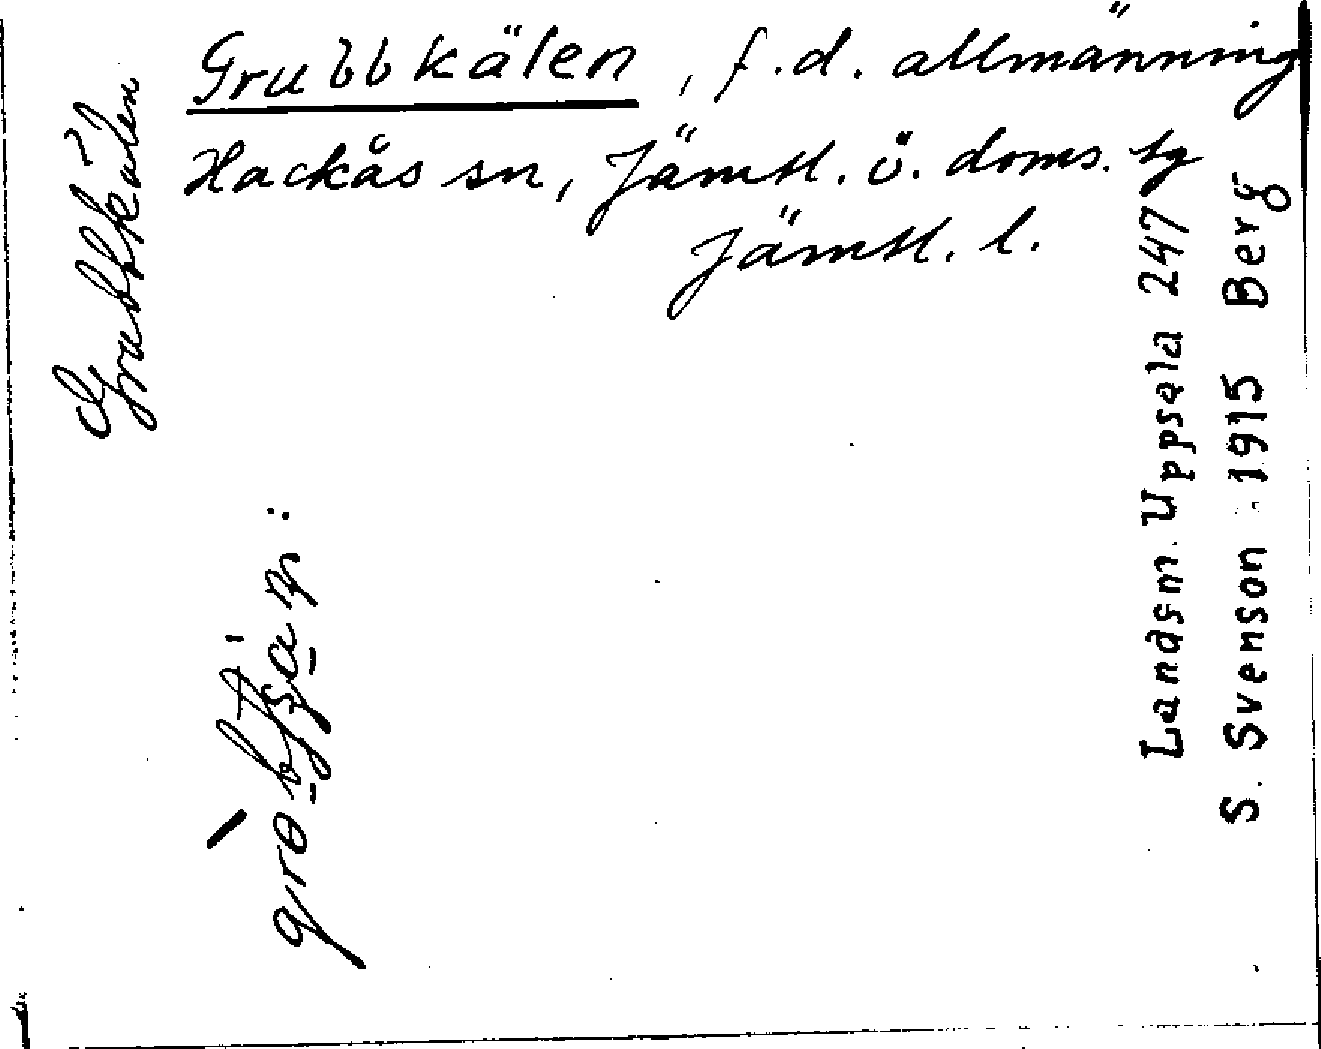 Grubbkälen, f.d. allmänning
Hackås sn, Jämtl. ö. doms. sg
Jämtl. l.
Grubbkälen
Landsm. Uppsala 247
S. Svenson 1915 Berg